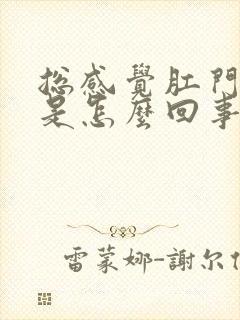 总感覺肛門
是怎麼回事
雷蒙娜-謝尔